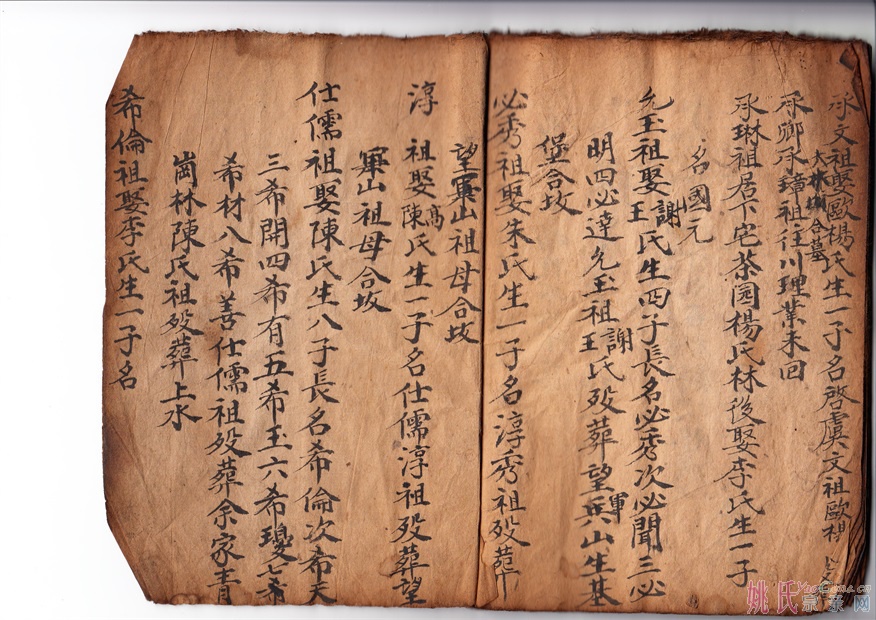 承文祖娶歐楊氏生一子名啓虞文祖歐楊
合墓
承卿承璋祖往川理業未回
承琳祖居下宅茶園楊氏林後娶李氏生一子
名國元
允玉祖娶謝王氏生四子長名必秀次必聞三必
明四必達允玉祖謝王氏殁葬望軍山生基
堡合坟
必秀祖娶朱氏生一子名淳秀祖殁葬
望軍山祖母合坟
淳祖娶高陳氏生一子名仕儒淳祖殁葬望
軍山祖母合坟
仕儒祖娶陳氏生八子長名希倫次希天
三希開四希有五希玉六希瓊七希
希材八希善仕儒祖殁葬余家
崗林陳氏祖殁葬上水
希倫祖娶李氏生一子名
姚氏宗亲网